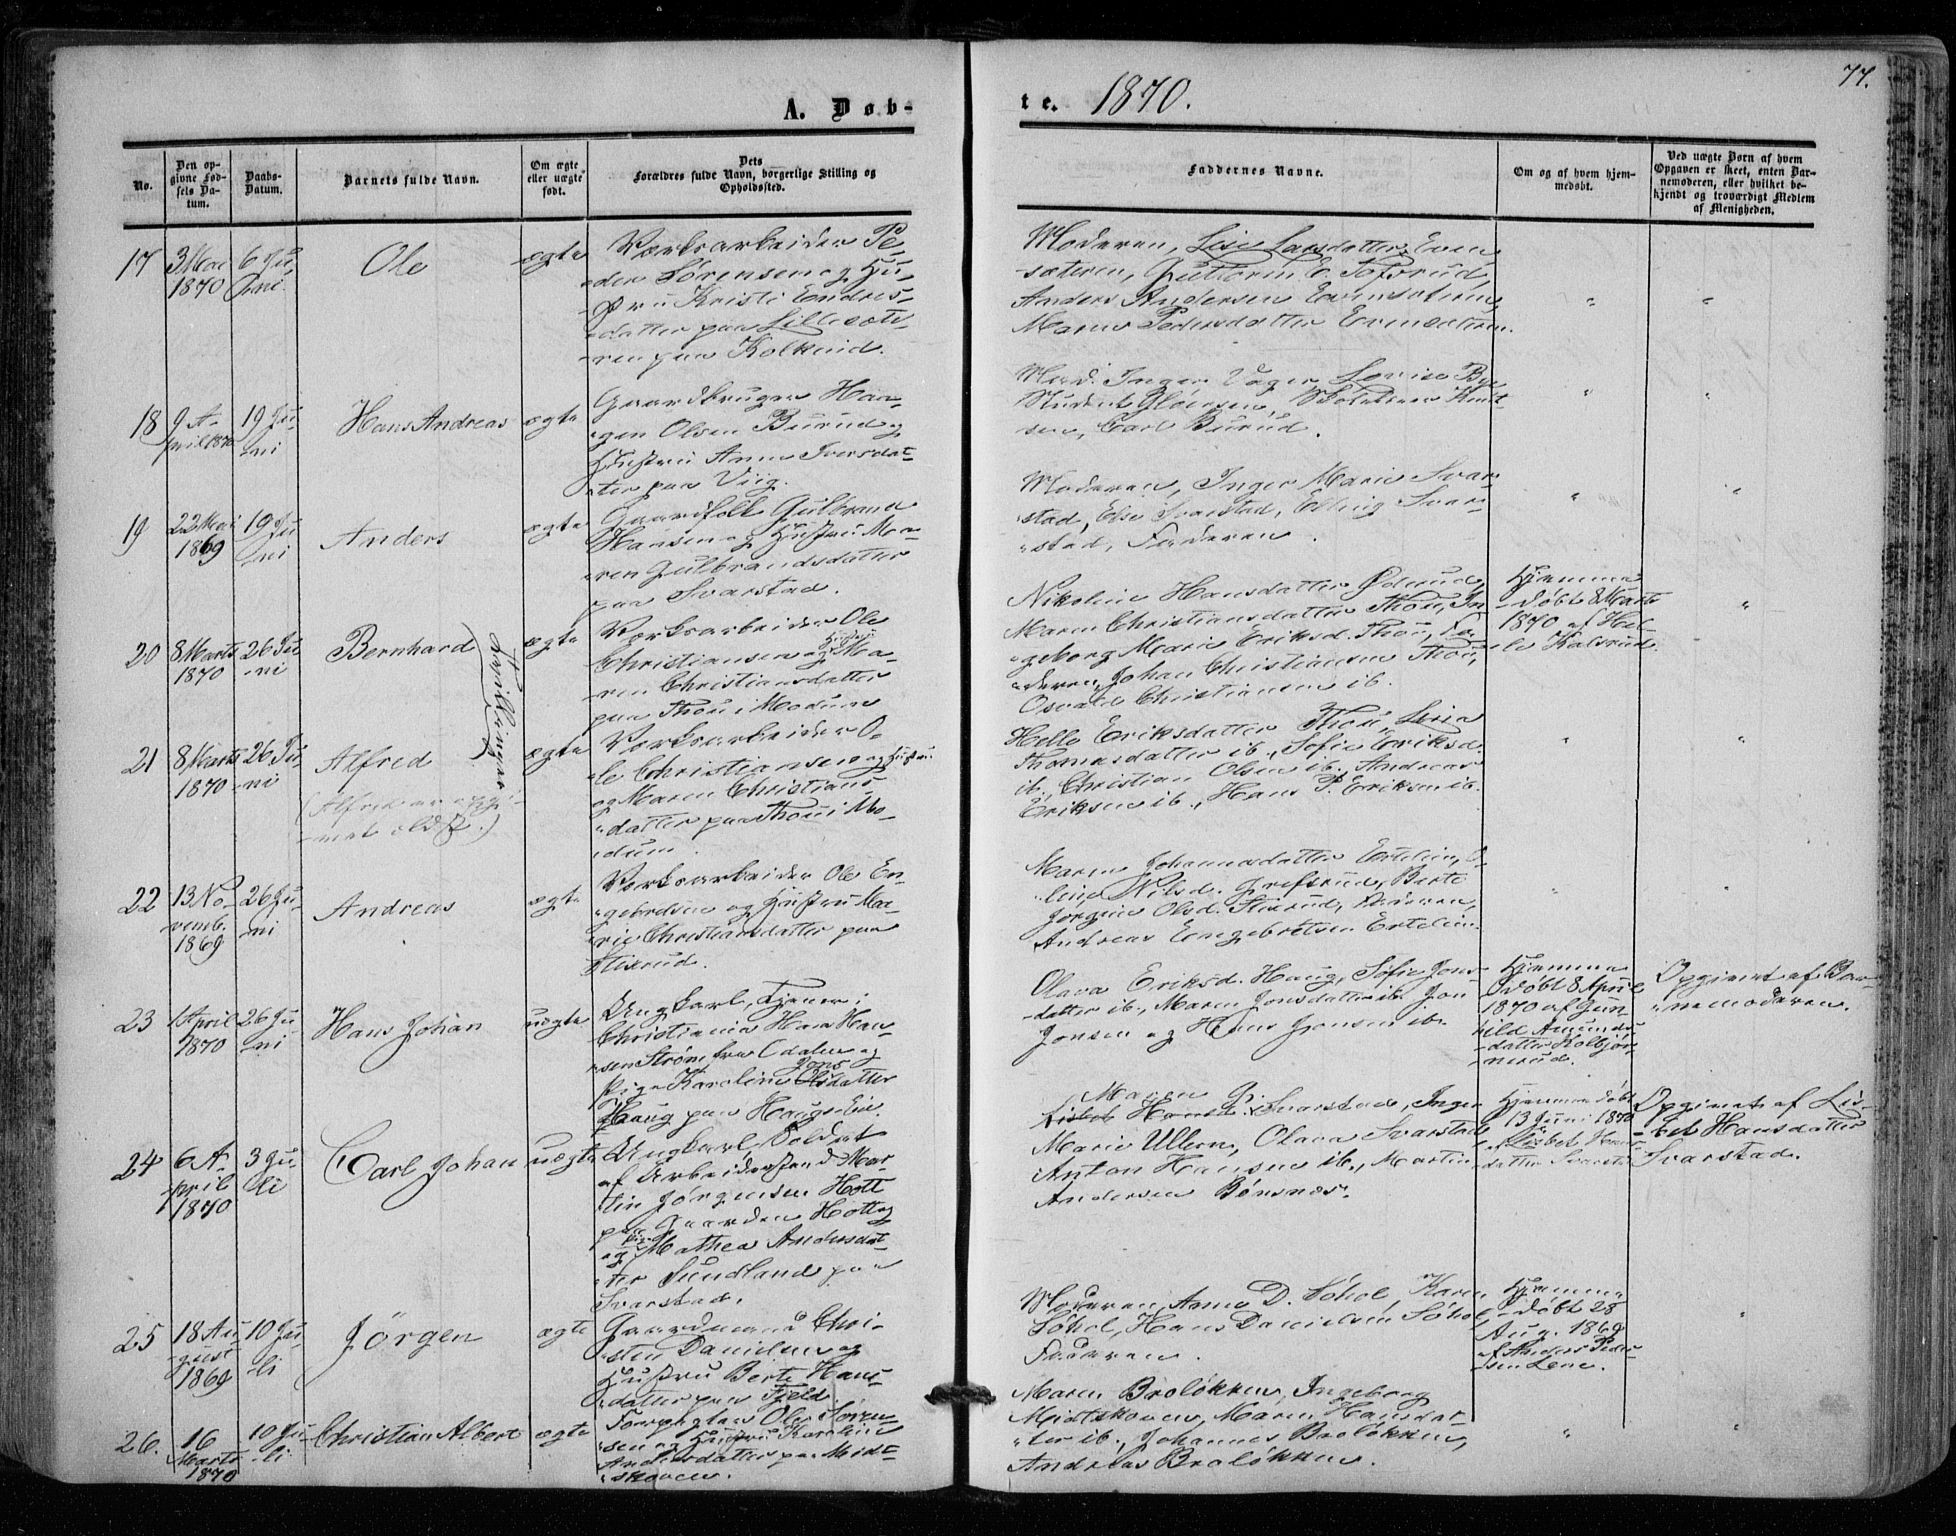 A. Døb-
te. 1870.
77.
No.
Den op-
givne Fød-
sels Da-
tum.
Daabs-
Datum.
Barnets fulde Navn.
Om ægte
eller uægte
født.
Dets
Forældres fulde Navn, borgerlige Stilling og
Opholdssted.
Faddernes Navne.
Om og af hvem hjem-
medøbt.
Ved uægte Børn af hvem
Opgaven er skeet, enten Bar-
nemoderen, eller hvilket be-
kjendt og troværdigt Medlem
af Menigheden.
17
3 Mai
1870
6 Ju-
ni
Ole
ægte
Værksarbeider Pe-
der Sørensen og Hu-
stru Kristi Endres-
datter paa Lillesæte-
ren paa
Moderen, Lise Larsdatter Even-
sæteren, Guttorm E. Tofsrud,
Anders Andersen Evensæteren,
Maren Pedersdatter Evensæteren.
18
9 A-
pril 1870
19 Ju-
ni
Hans Andreas
ægte
Gaardbruger Haa-
gen Olsen Burud og
Hustru Anne Iversdat-
ter paa Viig.
Mod. Inger Lovise
Student
sen, Carl Burud.
19
22 Mai
1869
19 Ju-
ni
Anders
ægte
Gaardfolk Gulbrand
Hansen og Hustru Ma-
ren Gulbrandsdatter
paa Svarstad.
Moderen, Inger Marie Svar-
stad, Else Svarstad, Elling Svar-
stad, Faderen.
20
8 Marts
1870
26 Ju-
ni
Bernhard
Tvillinger
ægte
Værksarbeider Ole
Christiansen og Hustru Ma-
ren Christiansdatter
paa Thou i Modum
Nikoline Hansdatter
Maren Christiansdatter Thou, In-
geborg Marie Eriksd. Thou, Fa-
deren, Johan Christiansen Thou,
Osvald Christiansen ib.
Hjemme-
døbt 8 Marts
1870 af Hel-
le Kalsrud.
21
8 Marts
1870
26 Ju-
ni
Alfred
(Alfred er opgi-
vet ældst.)
ægte
Værksarbeider O-
le Christiansen og Hustru
og Maren Christians-
datter paa Thou i Mo-
dum.
Helle Eriksdatter Thou,
Thomasdatter ib., Sofie Eriksd.
ib., Christian Olsen ib., Andreas
Eriksen ib., Hans P. Eriksen ib.
22
13 No-
vemb.
1869
26 Ju-
ni
Andreas
ægte
Værksarbeider Ole En-
gebretsen og Hustru Ma-
rie Christiansdatter paa
Stixrud.
Maren Johannesdatter Ertelien, O-
line Nilsd. Grefsrud, Berte
Jørgine Olsd. Stixrud, Faderen,
Andreas Engebretsen Ertelien
23
1 April
1870
26 Ju-
ni
Hans Johan
uægte
Ungkarl, Tjener i
Christiania Hans Han-
sen Strøm fra Odalen og
Pige Karoline Jons
Olsdatter
Haug paa Haugs-Eie.
Olava Eriksd. Haug, Sofie Jons-
datter ib., Maren Jonsdatter ib. Jon
Jonsen og Hans Jonsen ib.
Hjemme-
døbt 8 April
1870 af Gun-
hild Amunds-
datter Kolbjør-
nsrud.
Opgivet af Bar-
nemoderen.
24
6 A-
pril
1870
3 Ju-
li
Carl Johan
uægte
Ungkarl, Soldat
af Arbeiderstand Mar-
tin Jørgensen Hott
paa Gaarden Hotte
og Pige Mathea Andersdat-
ter Sundland paa
Svarstad.
Maren G.
Lisbet Hansd. Svarstad, Inger
Marie Ullern, Olava Svarstad
Anton Hansen ib., Martin
Andersen Bønsnæs.
Hjemmedøbt
13 Juni 1870
af Lisbet Hans-
datter Svarstad
Opgivet af Lis-
bet Hansdatter
Svarstad.
25
18 Au-
gust
1869
10 Ju-
li
Jörgen
ægte
Gaardmand Chri-
sten Danielsen og
Hustru Berte Hans-
datter paa Fjeld.
Moderen, Anne D. Søhol, Karen
Søhol, Hans Danielsen Søhol,
Faderen.
Hjemme-
døbt 25
Aug. 1869
af Anders Peder-
sen Lene.
26.
16
Marts
1870
10 Ju-
li
Christian Albert
ægte
Forpagter Ole Søren-
sen og Hustru Karoline
Andersdatter paa Midt-
skoven.
Maren Broløkken, Ingeborg
Midtskoven, Maren Hansdat-
ter ib., Johannes Broløkken,
Andreas Broløkken.